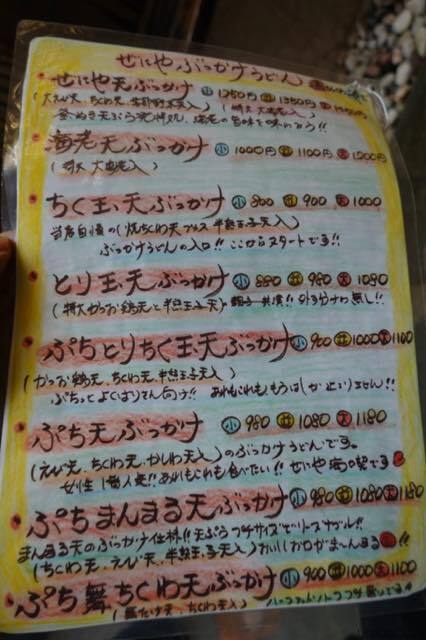 せにや ぶっかけうどん
せにや天ぶっかけ 小 1250円 並 1350円
(大えび天、ちくわ天、半熟玉子天入) (特大 大海老入)
海老天ぶっかけ 小 1000円 並 1100円 大 1200円
(特大 大海老入)
ちく玉天ぶっかけ 小 800 並 900 大 1000
当店自慢の(焼ちくわ天プラス 半熟玉子天入)
ぶっかけうどんの入口!! ここからスタートです!!
とり玉天ぶっかけ 小 880 並 980 大 1080
(特大かつお鶏天と半熟玉子天) 親子共演!! 非の打ち分け無し!!
ぷちとりちく玉天ぶっかけ 小 900 並 1000 大 1100
(かつお鶏天、ちくわ天、半熟玉子天入)
ぷちっと よくばりさん向け!! あれもこれも もうはしが止いりません!!
ぷち天ぶっかけ 小 980 並 1080 大 1180
(えび天、ちくわ天、かしわ天入)のぶっかけうどんです。
女性1番人気!! あれもこれも食べたい!! せにや
ぷちまんまる天ぶっかけ 小 980 並 1080 大 1180
まんまる天のぶっかけ仕様!! 天ぷらプチサイズでリーズナブル!!
(ちくわ天、えび天、半熟玉子天入) おいしお口がま〜んまる!!
ぷち舞ちくわ天ぶっかけ 小 900 並 1000 大 1100
(舞たけ天、ちくわ天入)